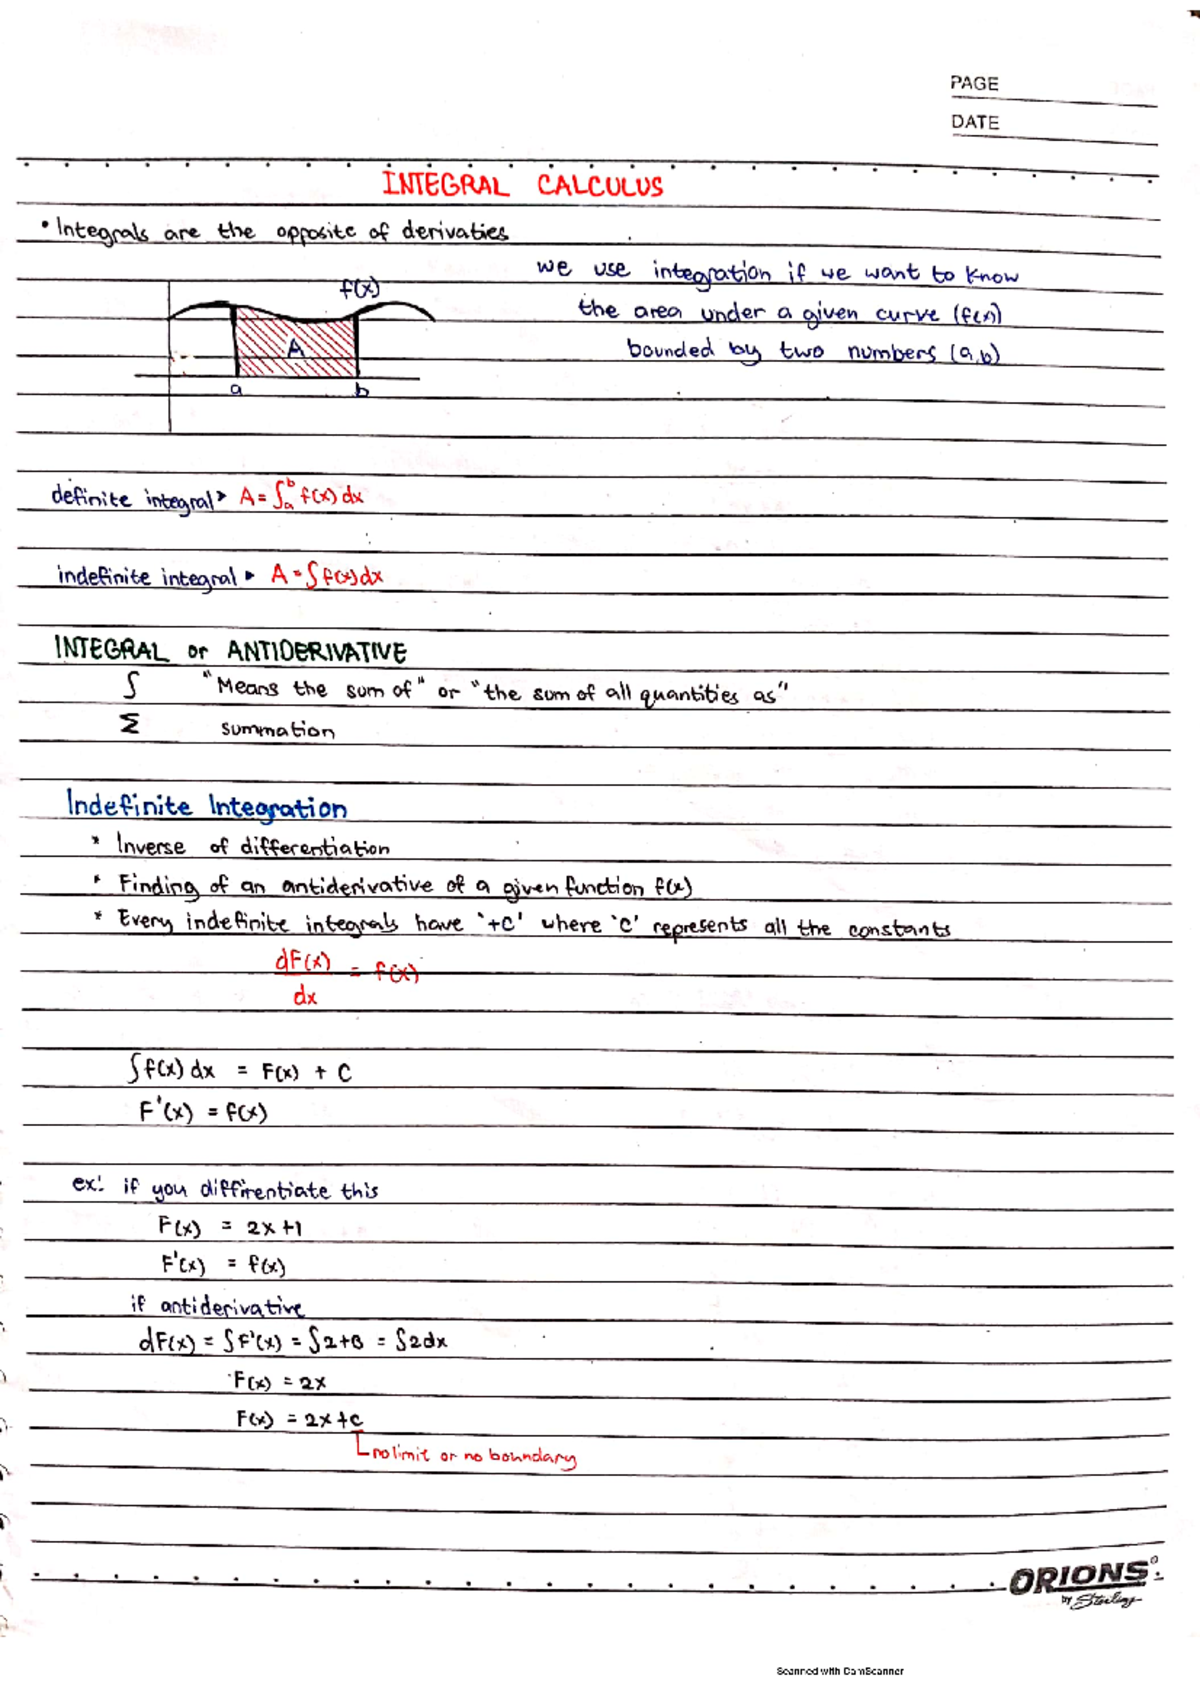 PAGE
DATE
INTEGRAL CALCULUS
• Integrals are the opposite of derivaties
f(x)
A
a b
we use integration if we want to know
the area under a given curve (f(x))
bounded by two numbers (a,b)
definite integral➤ A = ∫ₐᵇ f(x) dx
indefinite integral ► A = ∫f(x)dx
INTEGRAL or ANTIDERIVATIVE
∫ "Means the sum of" or "the sum of all quantities as"
Σ summation
Indefinite Integration
* Inverse of differentiation
* Finding of an antiderivative of a given function f(x)
* Every indefinite integrals have '+C' where 'C' represents all the constants
dF(x)
= f(x)
dx
∫f(x) dx = F(x) + C
F'(x) = f(x)
ex: if you diffirentiate this
F(x) = 2x+1
F'(x) = f(x)
if antiderivative
dF(x) = ∫F'(x) = ∫2+0 = ∫2dx
F(x) = 2x
F(x) = 2x+c
no limit or no boundary
ORIONS
by Sterling
Scanned with CamScanner